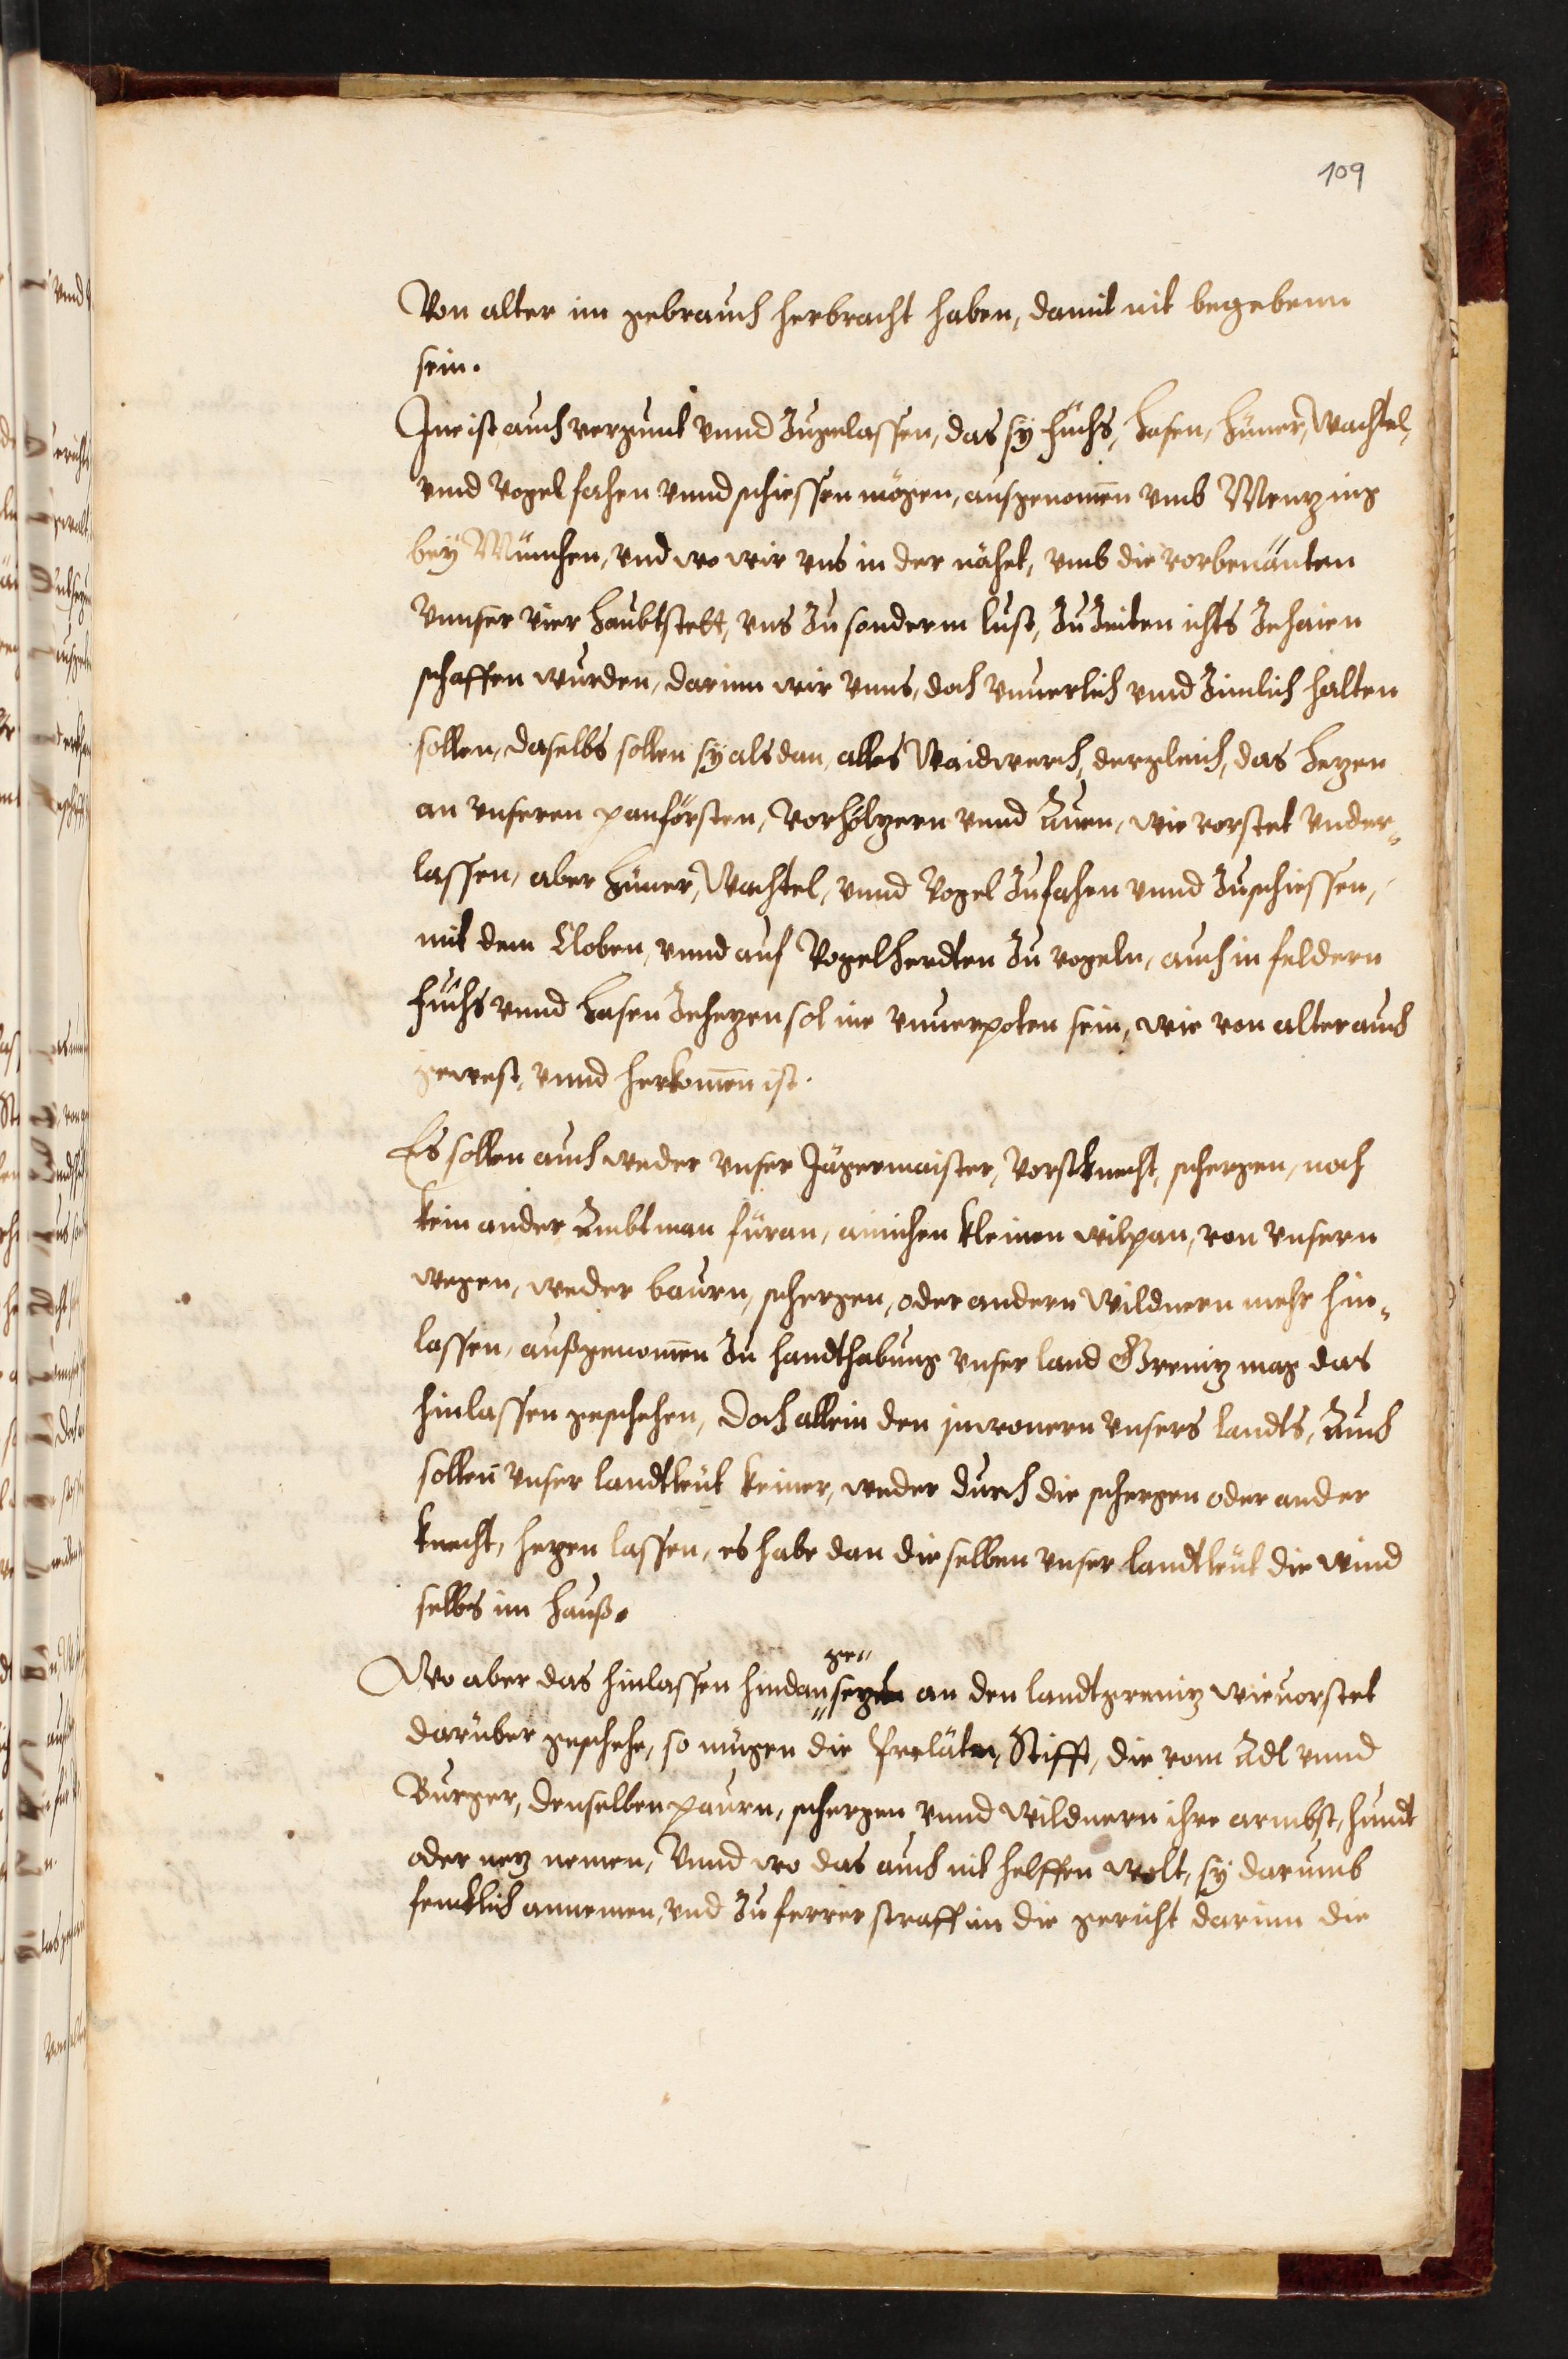 109
Von alter im gebrauch herbracht haben, damit nit begebenn
sein.
Ine ist auch vergunt vnnd Zugelassen, das sÿ füchs, hasen, hüner, wachtel,
vnnd vogel fahen vnnd schiessen mögen, ausgenomen vmb Menzing
beÿ München, vnd wo wir vns in der nähet, vmb die vorbenänten
vnnser vier haubtstett, vns Zu sonderm lust, Zu Zeiten ichts Zehaien
schaffen wurden, darinn wir vnns, doch vnuerlich vnnd Zimlich halten
sollen, daselbs sollen sÿ alsdan, alles Waidwerch, dergleich, das hezen
an vnseren panförsten, Vorhölzern vnnd Auen, wie vorstet vnder¬
lassen, aber hüner, Wachtel, vnnd Vogel Zufahen vnnd Zuschiessen,
mit dem Cloben, vnnd auf Vogelherdten Zu vogeln, auch in feldern
füchs vnnd hasen Zehezen sol ine vnuerpoten sein, wie von alter auch
gewest, vnnd herkomen ist.
Es sollen auch weder vnser Jägermaister, Vorstknecht, schergen, noch
kein ander Ambtman füran, ainichen kleinen wilpan, von vnsern
wegen, weder baurn, schergen, oder andern Wildnern mehr hin¬
lassen, außgenomen Zu handthabung vnser land Greniz mag das
hinlassen geschehen, Doch allein den inwonern vnsers landts, Auch
sollen vnser landtleüt keiner, weder durch die schergen oder ander
knecht, hezen lassen, es habe dan die selben vnser landtleüt die wind
selbs im hauß.
ge¬
Wo aber das hinlassen hindan sezt an den landtgreniz wieuorstet
darüber geschehe, so mügen die Prelätn, Stifft, die vom Adl vnnd
Burger, denselben paurn, schergen vnnd Wildnern ihre armbst, hundt
oder nez nemen, Vnnd wo das auch nit helffen wolt, sÿ darumb
fencklich annemen, vnd Zu ferrer straff in die gericht darinn die